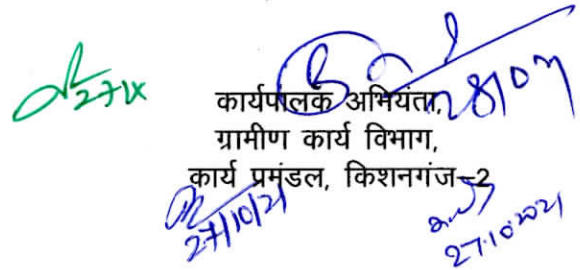 27/X
28/07
कार्यपालक अभियंता,
ग्रामीण कार्य विभाग,
कार्य प्रमंडल, किशनगंज-2
27/10/21
27.10.2021